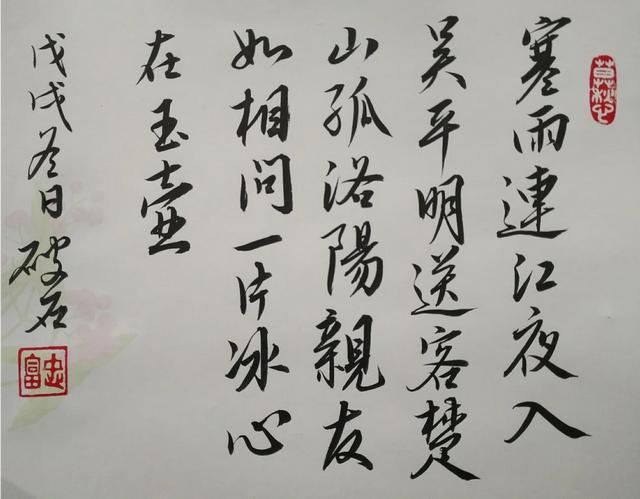 寒雨連江夜入
吴平明送客楚
山孤洛陽親友
如相問一片冰心
在玉壶
戊戌冬日 破石
忠富